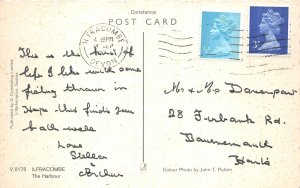 Constance
POST CARD
ILFRACOMBE
DEVON
This is the kind of
life I like with some
fishing thrown in
Hope this finds you
both well
Love
Stella
&
Arthur
Mr & Mrs Davenport
28 Firbank Rd.
Bournemouth
Hants
V.8178 ILFRACOMBE
The Harbour
Colour Photo by John T. Pullen